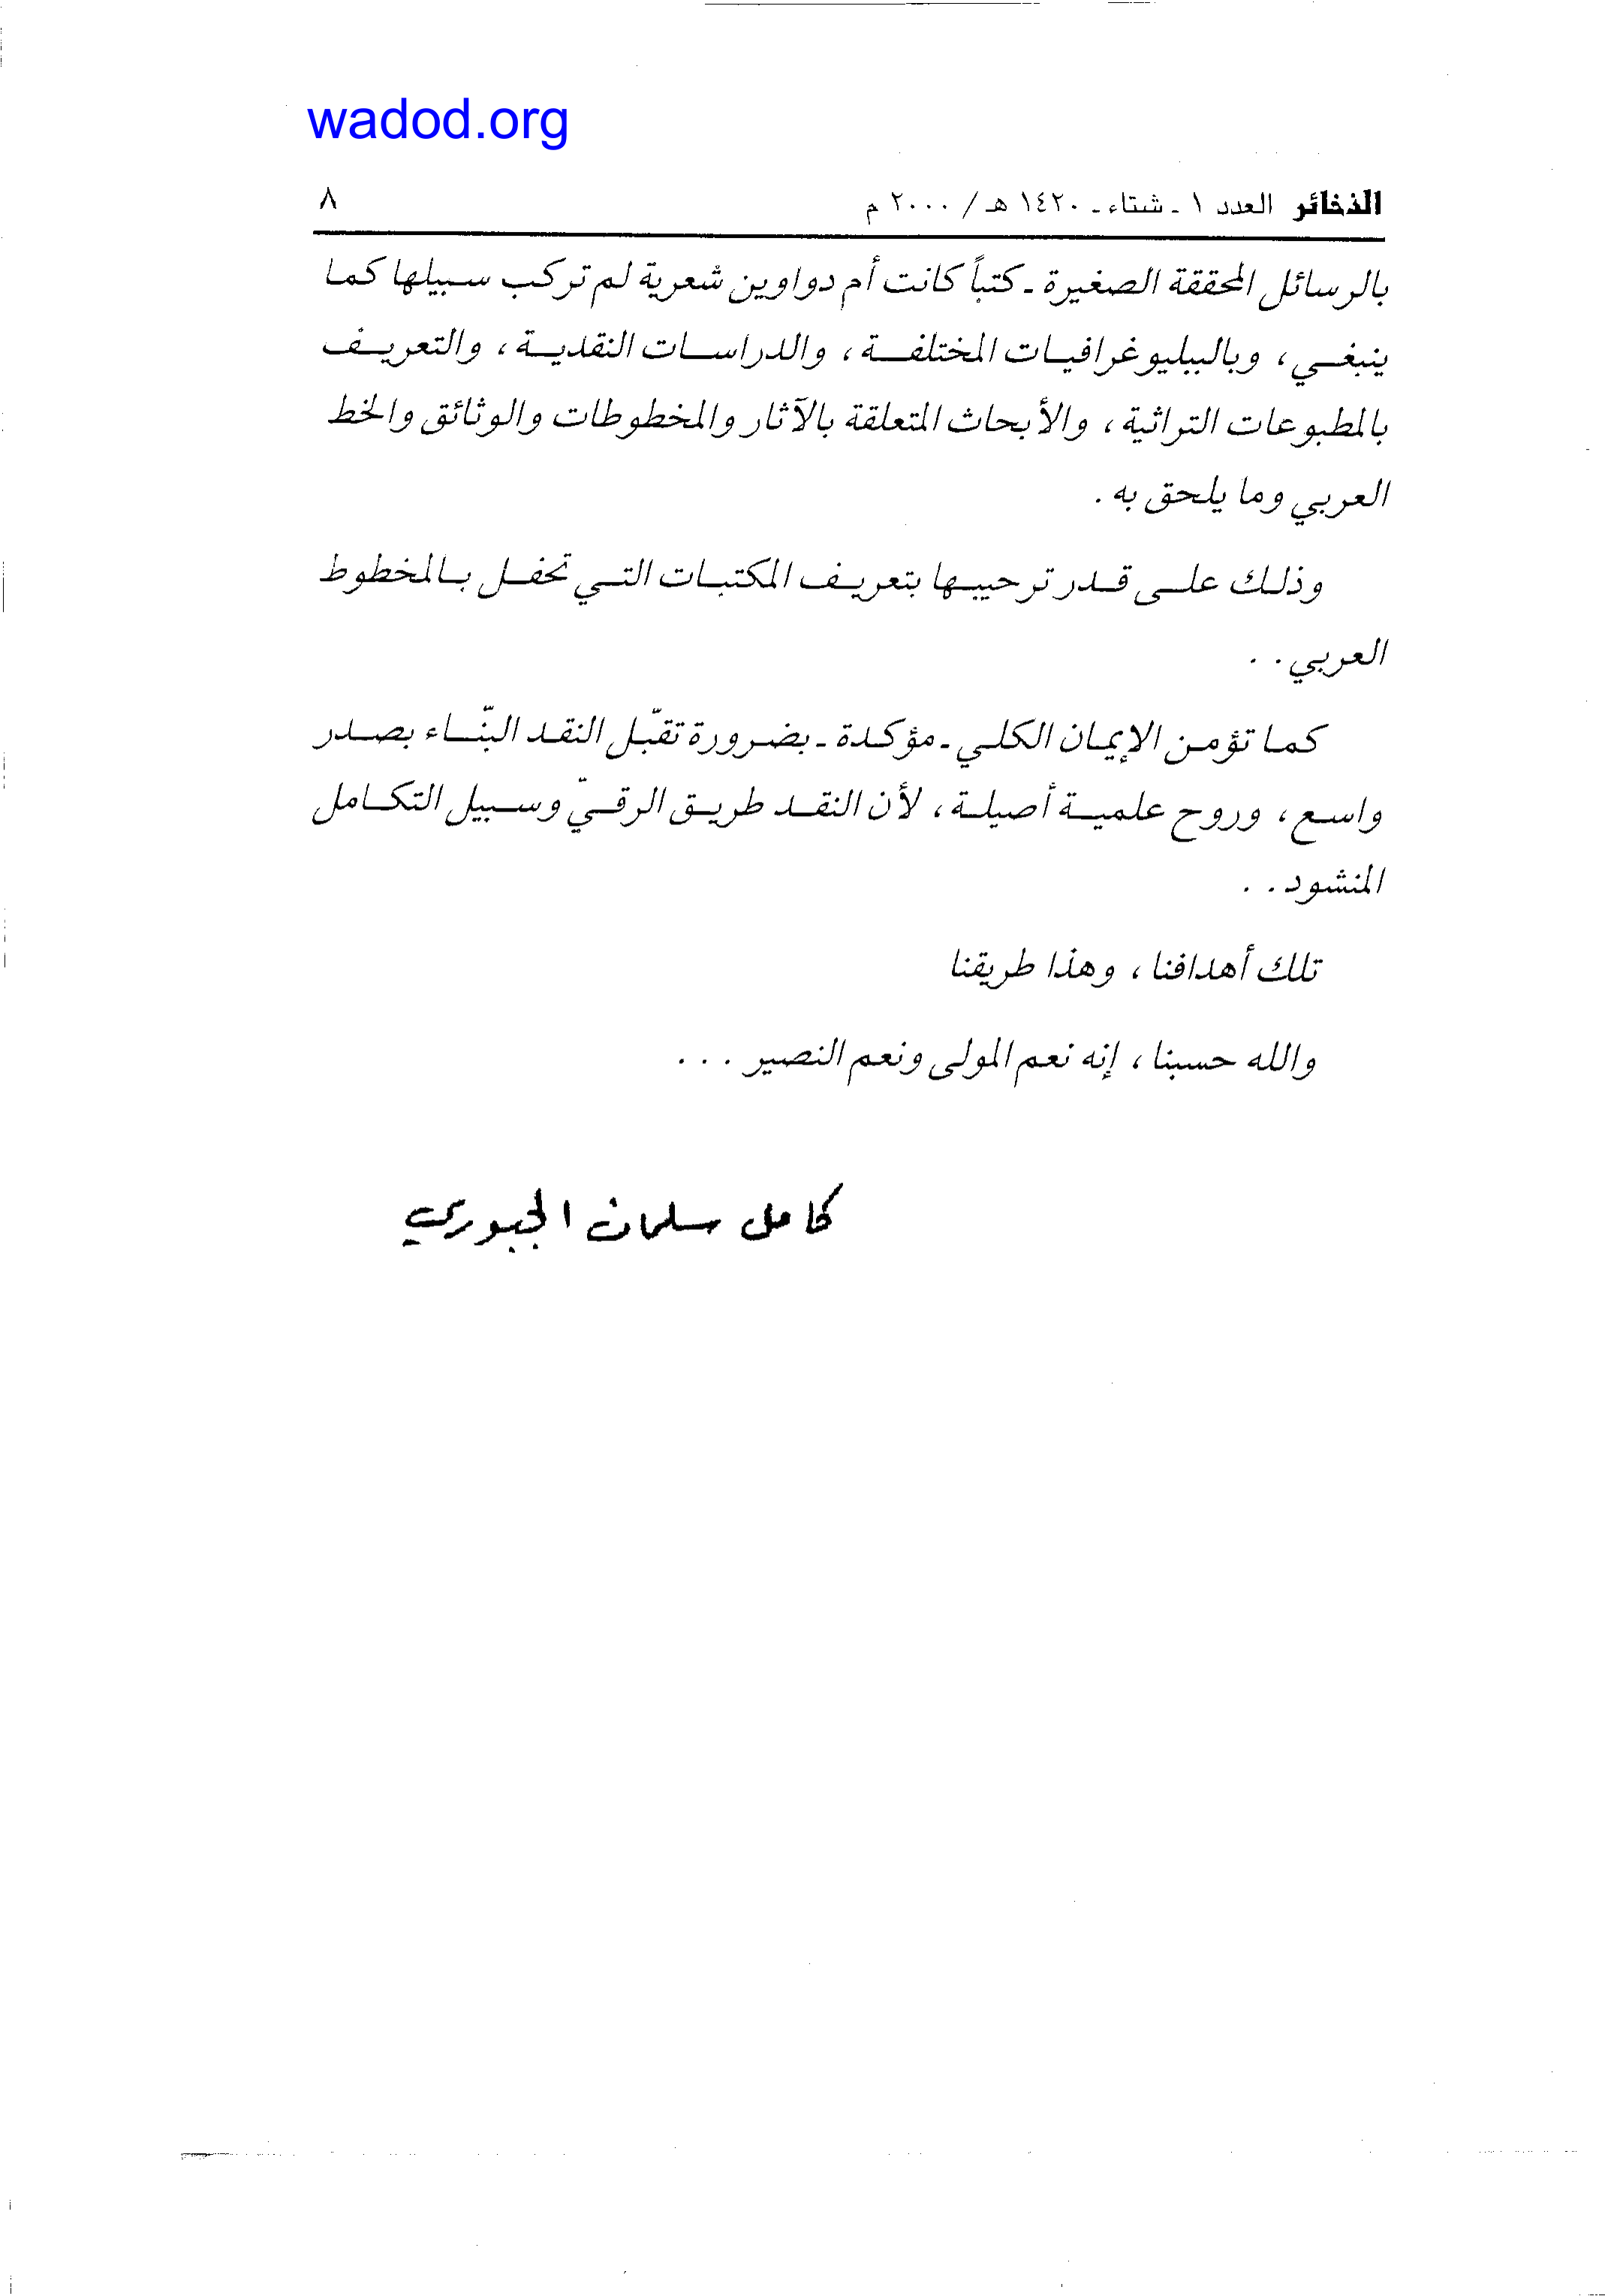 wadod.org
الذخائر العدد ١ ـ شتاء ـ ١٤٢٠ هـ / ٢٠٠٠ م ٨
بالرسائل المحققة الصغيرة ـ كتباً كانت أم دواوين شعرية لم تركب سبيلها كما
ينبغي، وبالببليوغرافيات المختلفة، والدراسات النقدية، والتعريف
بالمطبوعات التراثية، والأبحاث المتعلقة بالآثار والمخطوطات والوثائق والخط
العربي وما يلحق به.
وذلك على قدر ترحيبها بتعريف المكتبات التي تحفل بالمخطوط
العربي..
كما تؤمن الإيمان الكلي ـ مؤكدة ـ بضرورة تقبّل النقد البنّاء بصدر
واسع، وروح علمية أصيلة، لأن النقد طريق الرقيّ وسبيل التكامل
المنشود..
تلك أهدافنا، وهذا طريقنا
والله حسبنا، إنه نعم المولى ونعم النصير...
كامل سلمان الجبوري